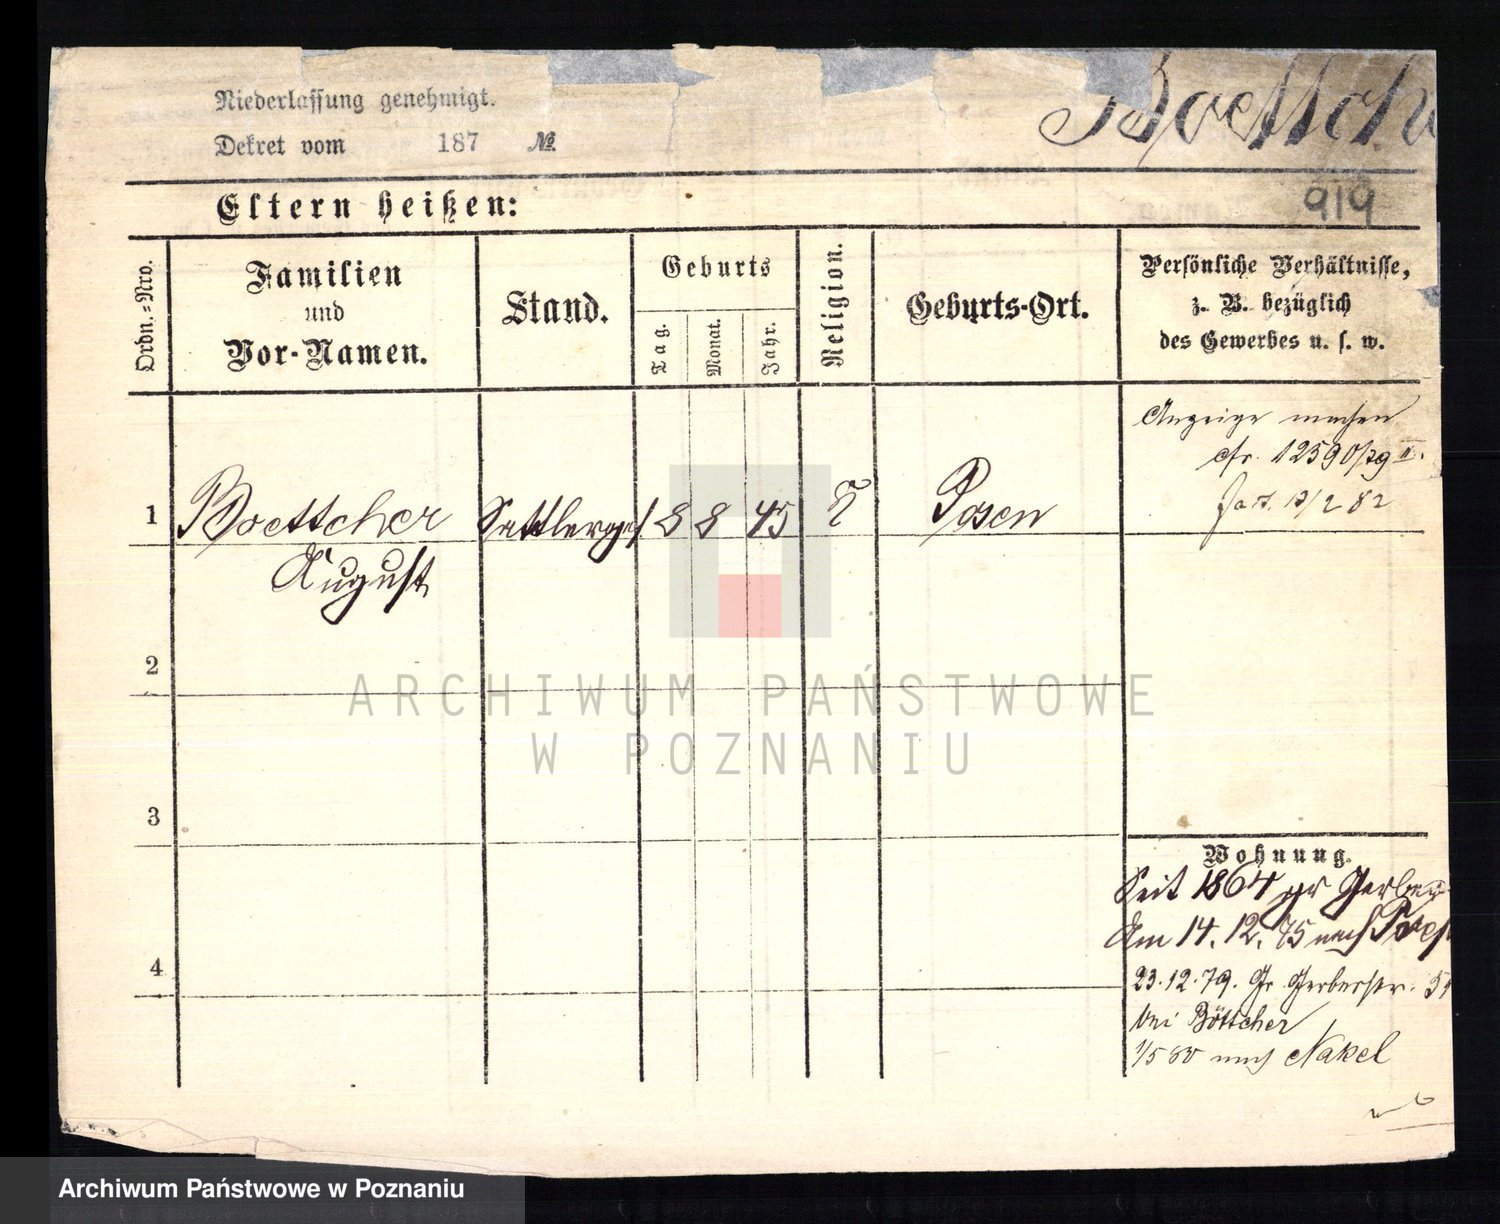 Niederlassung genehmigt.
Dekret vom 187 №
Boettche
919
Eltern heißen:
Ordn.-Nro.
Familien
und
Vor-Namen.
Stand.
Geburts
Tag.
Monat.
Jahr.
Religion.
Geburts-Ort.
Persönliche Verhältnisse,
z. B. bezüglich
des Gewerbes u. s. w.
Anzeige machen
cfr. 12590/79 II.
13/2 82
1 Boettcher Sattlerges 8 8 45 Posen
August
2
3
4
Wohnung.
Seit 1864 gr Gerber
Am 14. 12. 75 nach
23.12.79. Gr. Gerberstr.
bei Böttcher
1/5 80 nach Nakel
ARCHIWUM PAŃSTWOWE
W POZNANIU
Archiwum Państwowe w Poznaniu